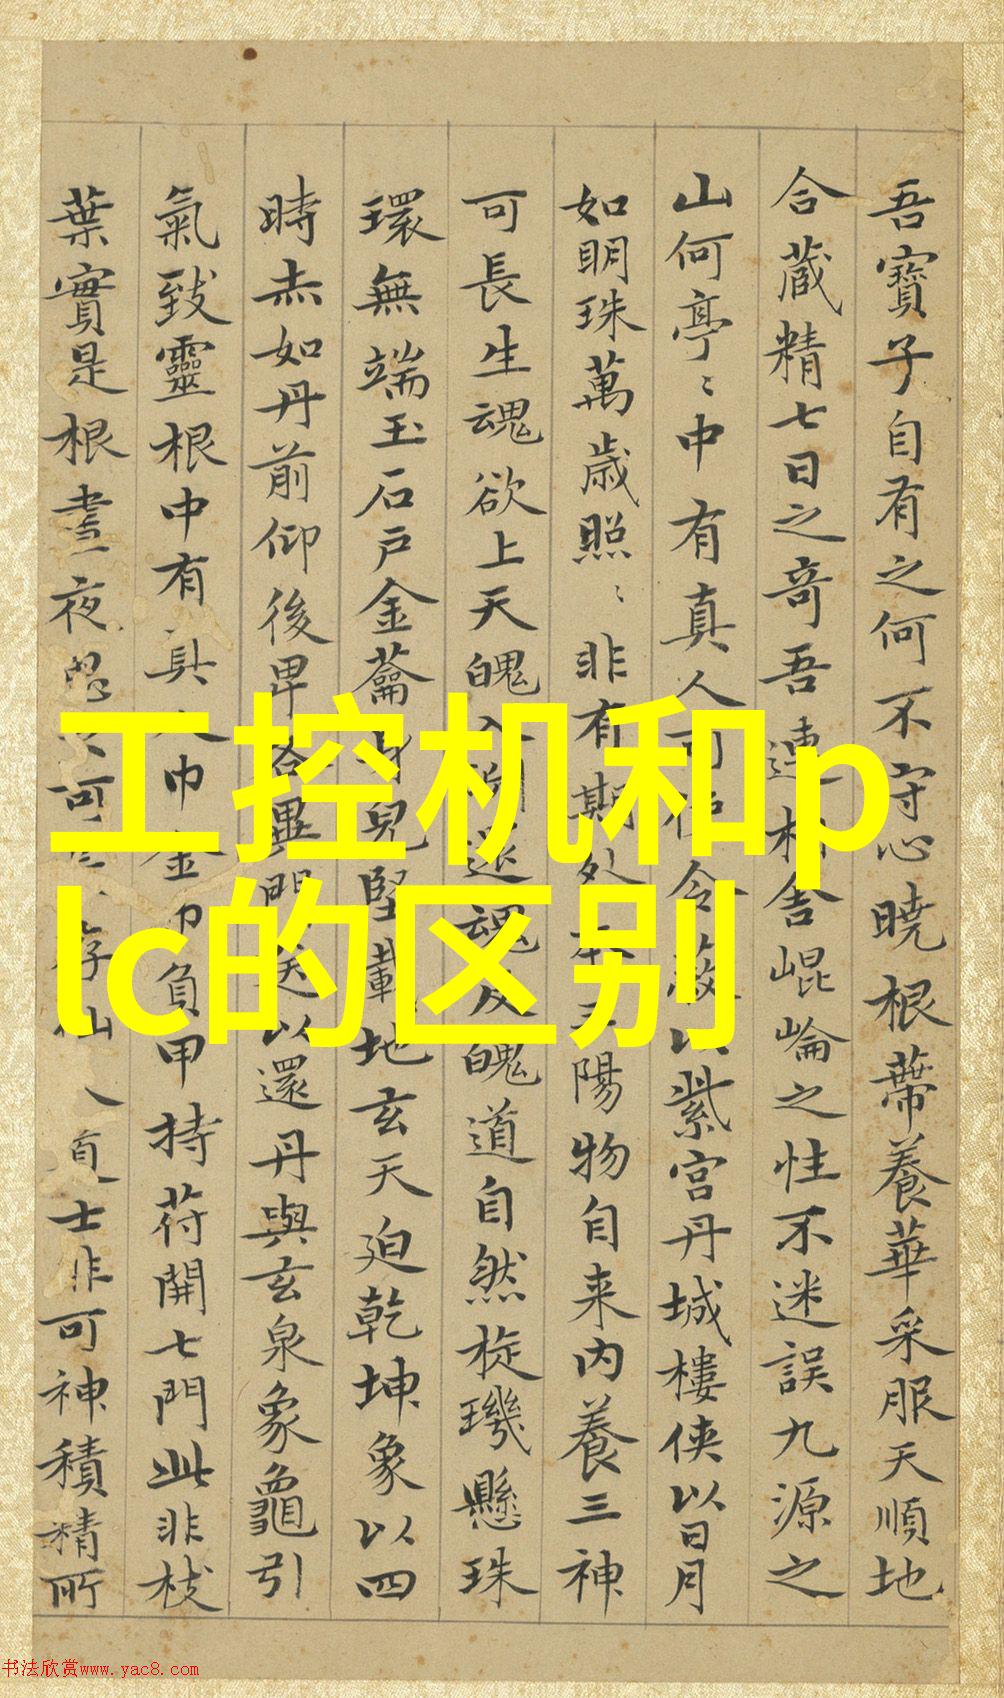 吾寶子自有之何不守心曉根蔕養華采服天順地
合蔵精七日之奇吾連相舍崐崘之性不迷誤九源之
山何亭〻中有真人可使令蔽以紫宮丹城樓俠以日月
如明珠萬歳照〻非有期外本三陽物自来内養三神
可長生魂欲上天魄入淵還魂反魄道自然旋璣懸珠
環無端玉石戸金籥身兒堅載地玄天迫乾坤象以四
時赤如丹前仰後卑各異門送以還丹與玄泉象龜引
氣致靈根中有真人巾金巾負甲持苻開七門此非枝
葉實是根晝夜思之可長存仙人道士非可神積精所
工控机和p
lc的区别
书法欣赏www.yac8.com